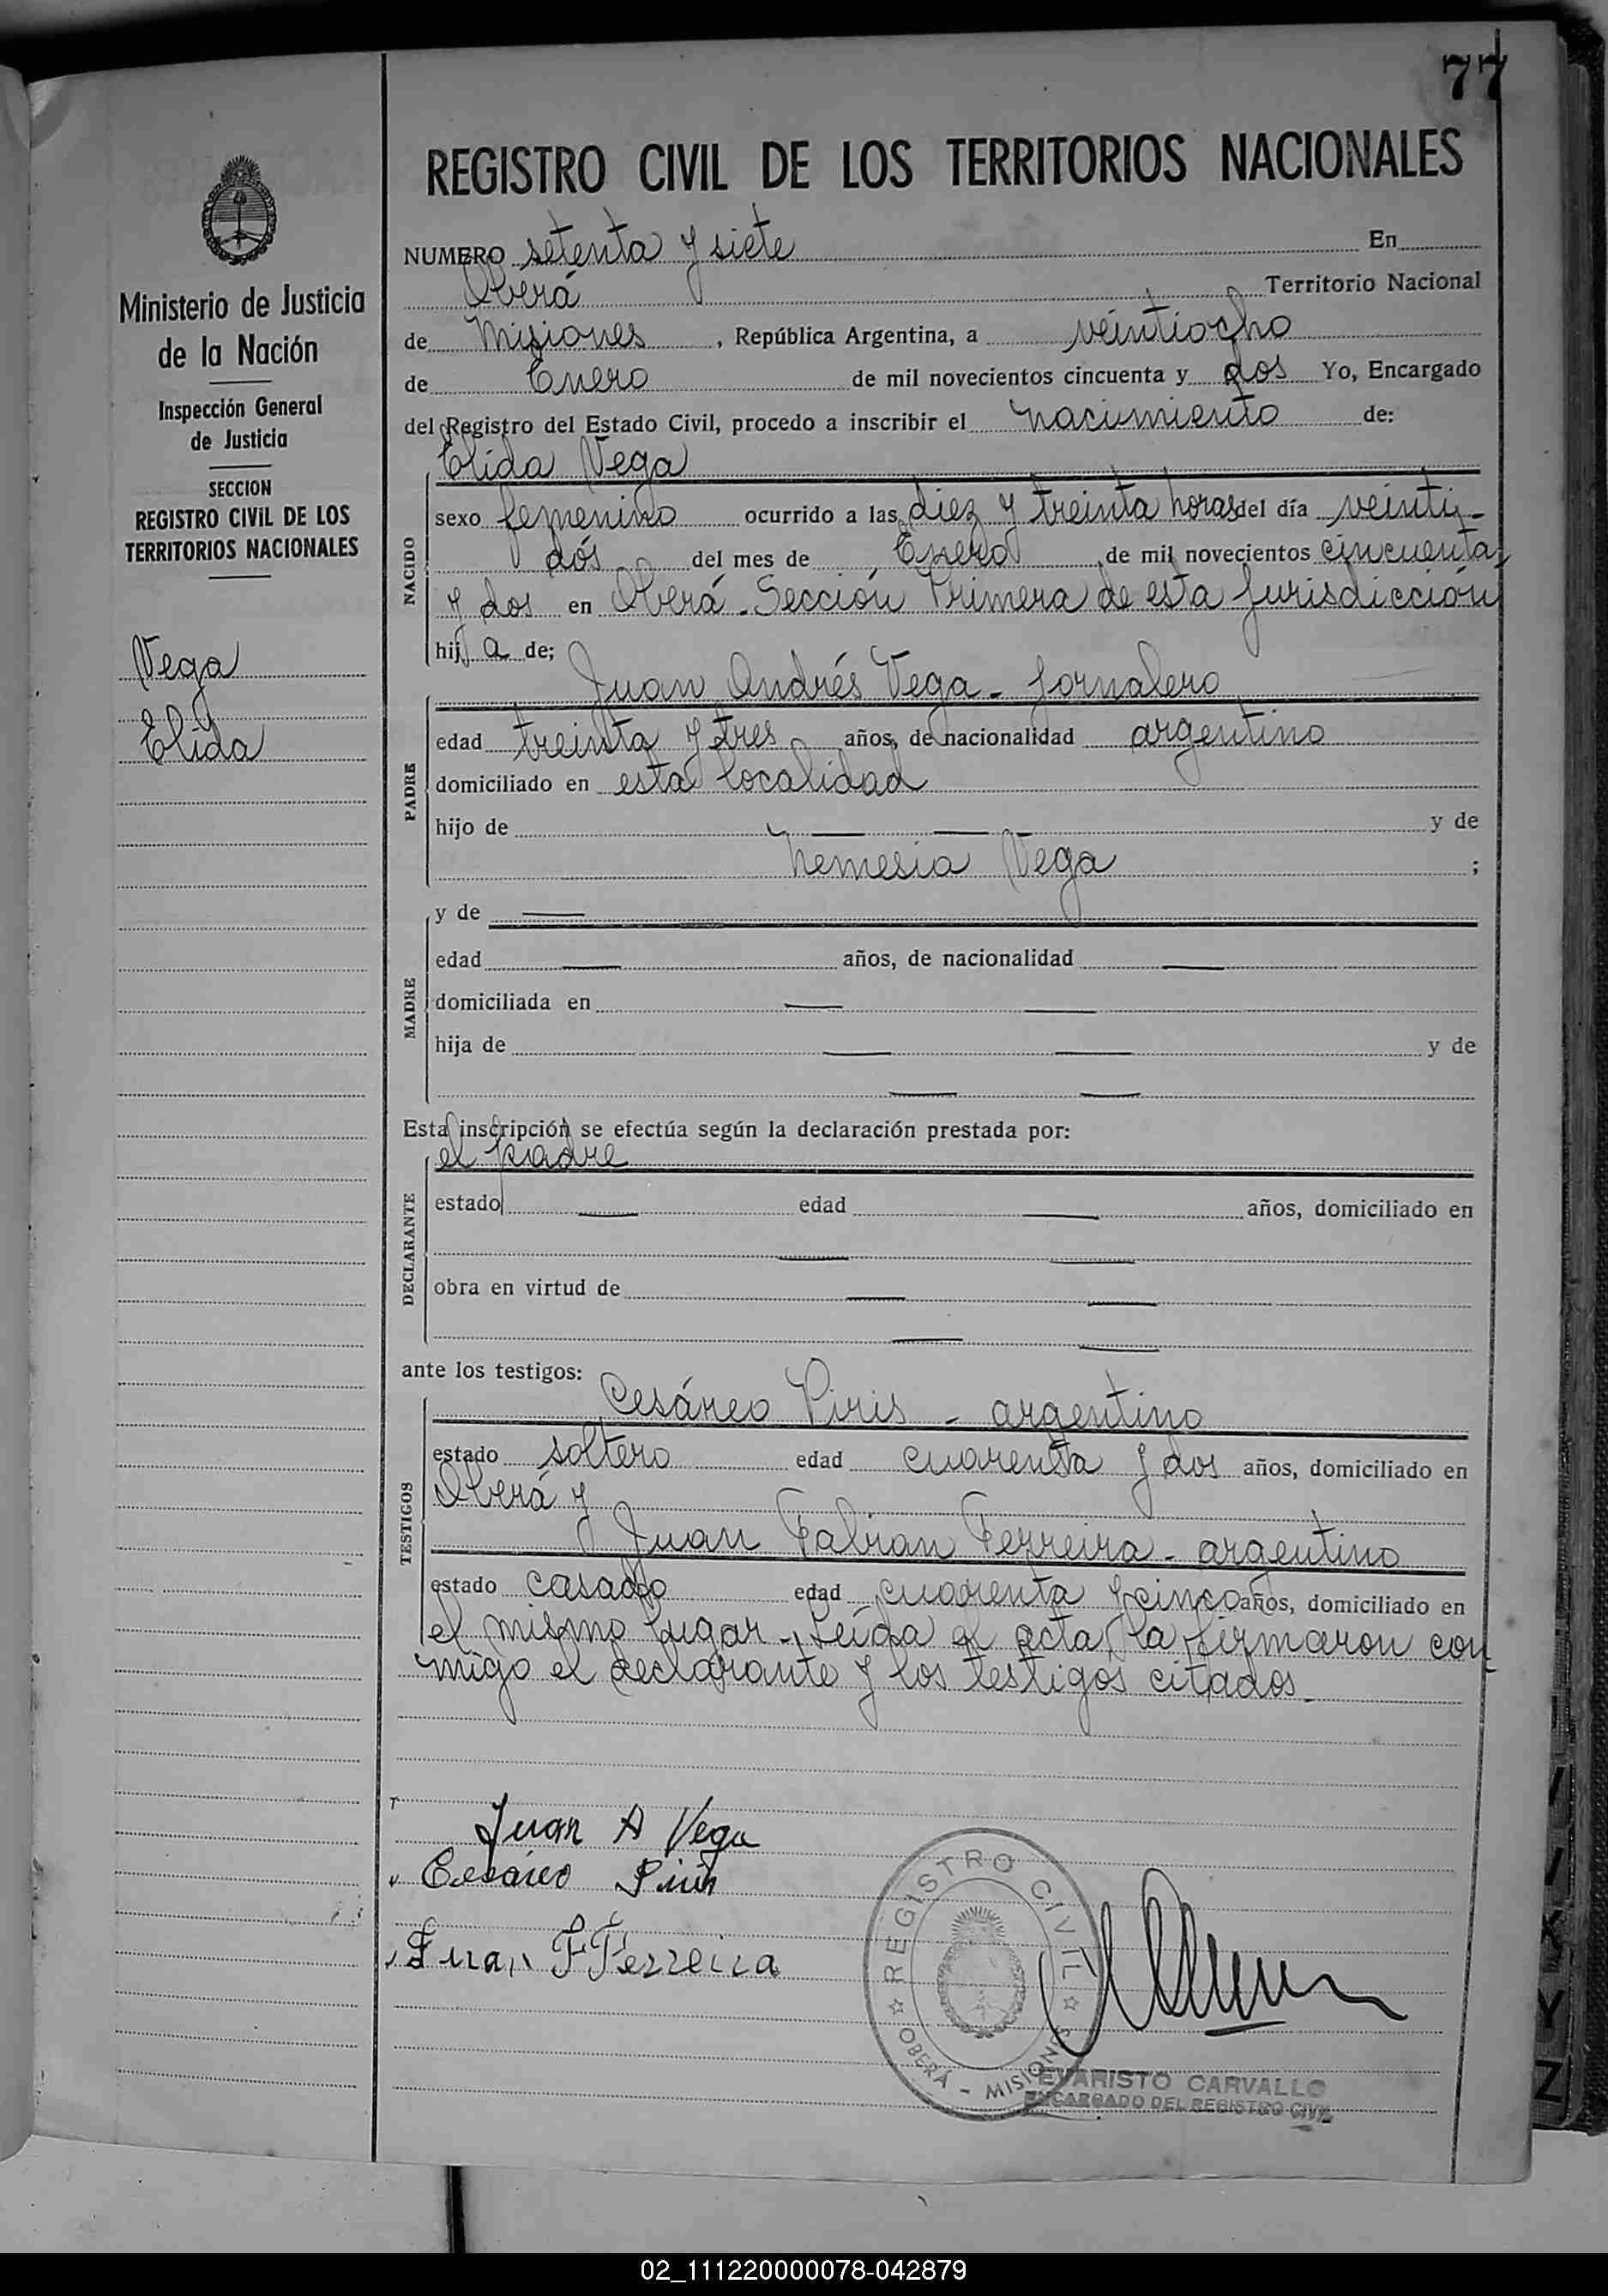 77
REGISTRO CIVIL DE LOS TERRITORIOS NACIONALES
Ministerio de Justicia
de la Nación
Inspección General
de Justicia
SECCION
REGISTRO CIVIL DE LOS
TERRITORIOS NACIONALES
Vega
Elida
NUMERO setenta y siete En
Oberá Territorio Nacional
de Misiones, República Argentina, a veintiocho
de Enero de mil novecientos cincuenta y dos Yo, Encargado
del Registro del Estado Civil, procedo a inscribir el nacimiento de:
Elida Vega
NACIDO
sexo femenino ocurrido a las diez y treinta horas del día veinti-
dós del mes de Enero de mil novecientos cincuenta
y dos en Oberá - Sección Primera de esta jurisdicción
hija de;
Juan Andrés Vega - jornalero
PADRE
edad treinta y tres años, de nacionalidad argentino
domiciliado en esta localidad
hijo de — — y de
Nemesia Vega ;
MADRE
y de —
edad — años, de nacionalidad —
domiciliada en — —
hija de — — y de
— —
Esta inscripción se efectúa según la declaración prestada por:
el padre
DECLARANTE
estado — edad — años, domiciliado en
— —
obra en virtud de — —
— —
ante los testigos:
Cesáreo Piris - argentino
TESTIGOS
estado soltero edad cuarenta y dos años, domiciliado en
Oberá y
Juan Fabian Ferreira - argentino
estado casado edad cuarenta y cinco años, domiciliado en
el mismo lugar - Leída el acta, la firmaron con
migo el declarante y los testigos citados.
Juan A Vega
Cesáreo Piris
Juan F Ferreira
REGISTRO CIVIL
OBERÁ - MISIONES
EVARISTO CARVALLO
ENCARGADO DEL REGISTRO CIVIL
V
X
Y
Z
02_111220000078-042879